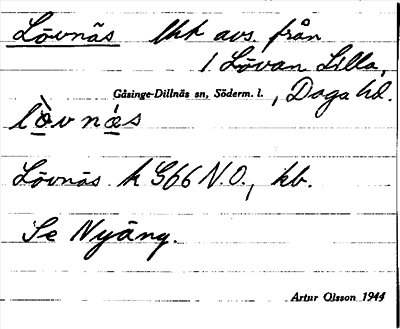 Lövnäs lhk avs. från
1 Lövan Lilla,
Gåsinge-Dillnäs sn, Söderm. l. , Daga hd.
lòvnás
Lövnäs h G66 N.O., kb.
Se Nyäng.
Artur Olsson 1944